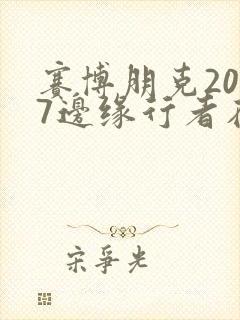 赛博朋克20
7邊缘行者在
宋爭光